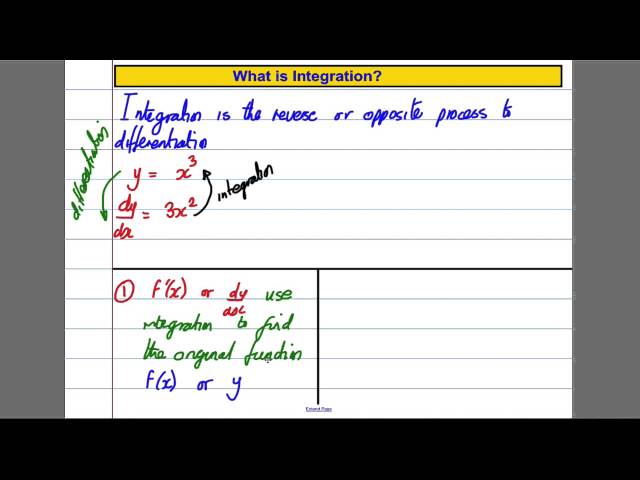 What is Integration?
Integration is the reverse or opposite process to
differentiation
differentiation
y = x³
dy/dx = 3x²
integration
① f'(x) or dy/dx use
integration to find
the original function
f(x) or y
Extend Page